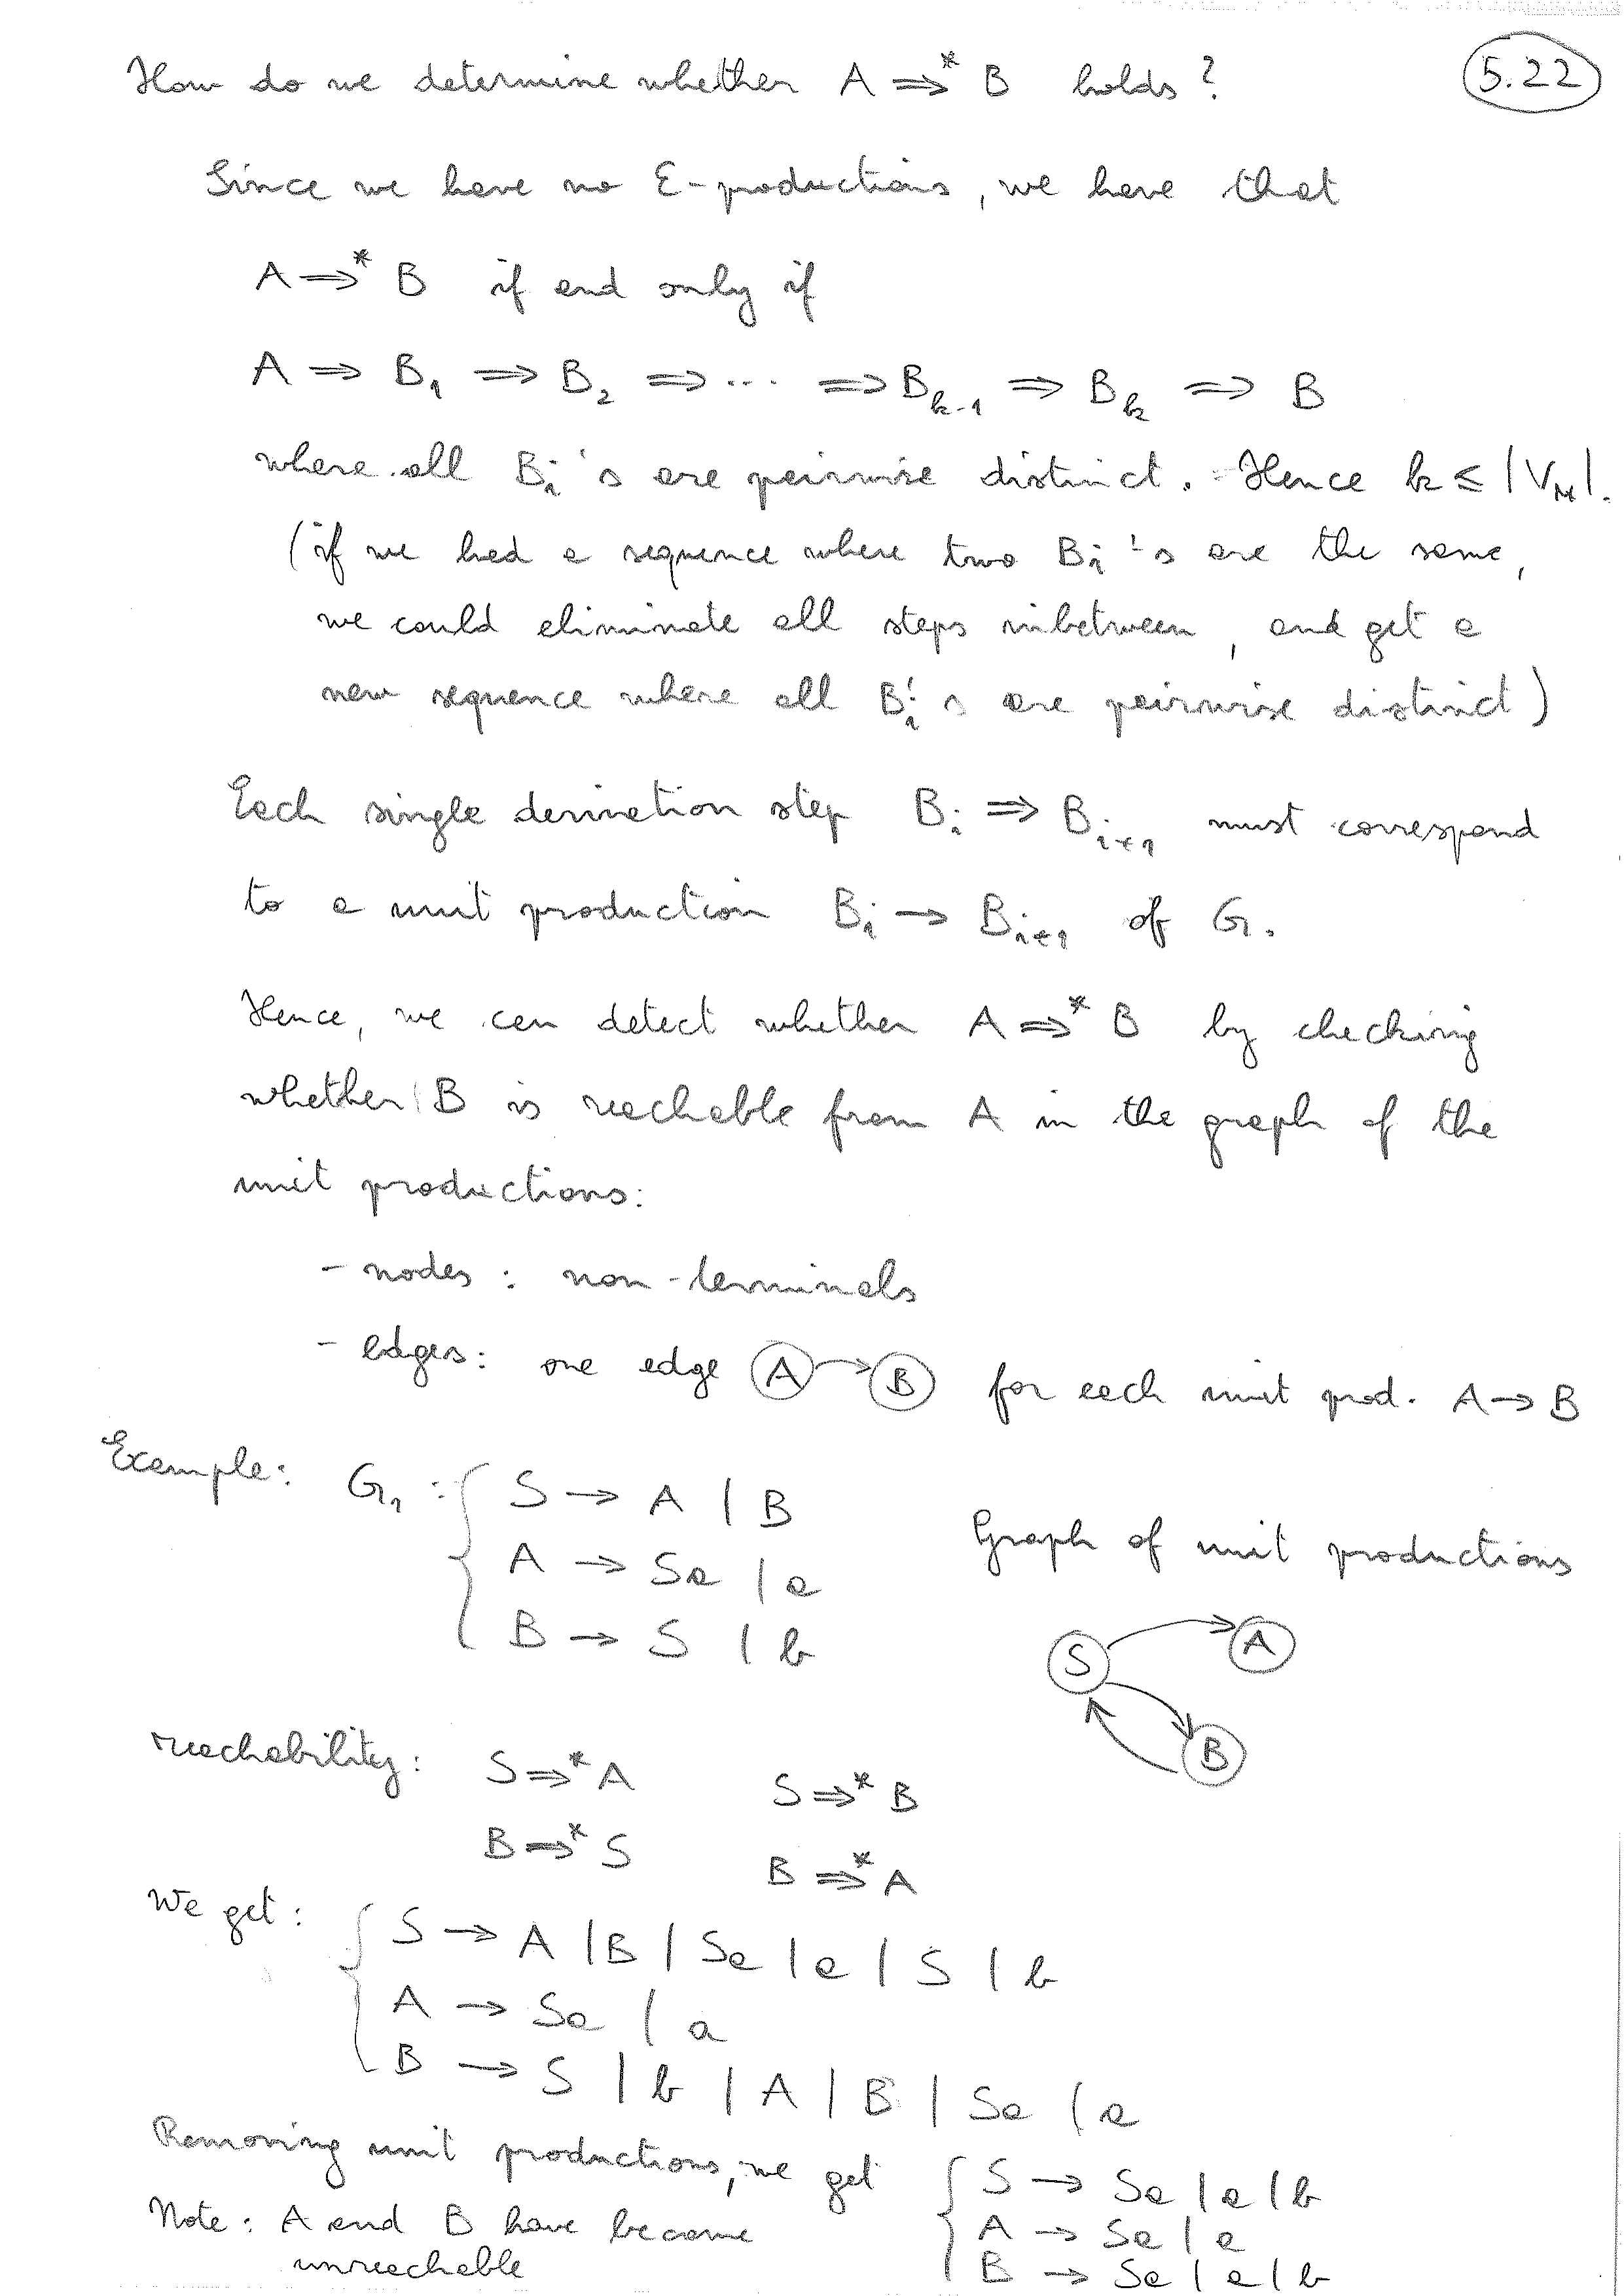 How do we determine whether A ⇒* B holds? 5.22
Since we have no ε-productions, we have that
A ⇒* B if and only if
A ⇒ B₁ ⇒ B₂ ⇒ ... ⇒ Bₖ₋₁ ⇒ Bₖ ⇒ B
where all Bᵢ's are pairwise distinct. Hence k ≤ |V_N|.
(if we had a sequence where two Bᵢ's are the same,
we could eliminate all steps inbetween, and get a
new sequence where all Bᵢ's are pairwise distinct)
Each single derivation step Bᵢ ⇒ Bᵢ₊₁ must correspond
to a unit production Bᵢ → Bᵢ₊₁ of G.
Hence, we can detect whether A ⇒* B by checking
whether B is reachable from A in the graph of the
unit productions:
- nodes: non-terminals
- edges: one edge A → B for each unit prod. A → B
Example: G₁: { S → A | B
A → Sa | a
B → S | b
Graph of unit productions
S A
B
reachability: S ⇒* A S ⇒* B
B ⇒* S B ⇒* A
We get: { S → A | B | Sa | a | S | b
A → Sa | a
B → S | b | A | B | Sa | a
Removing unit productions, we get { S → Sa | a | b
A → Sa | a
B → Sa | a | b
Note: A and B have become
unreachable